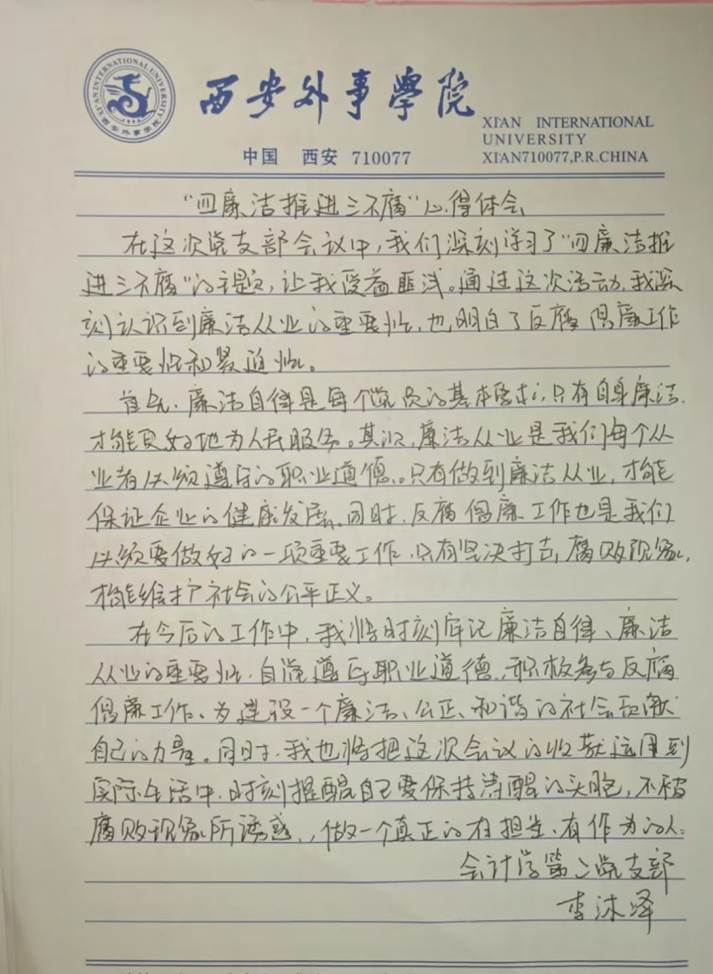 XI'AN INTERNATIONAL UNIVERSITY
西安外事学院
西安外事學院
XI'AN INTERNATIONAL
UNIVERSITY
中国 西安 710077
XI'AN710077,P.R.CHINA
“四廉洁推进三不腐”心得体会
在这次党支部会议中,我们深刻学习了“四廉洁推
进三不腐”的主题,让我受益匪浅。通过这次活动,我深
刻认识到廉洁从业的重要性,也明白了反腐倡廉工作
的重要性和紧迫性。
首先,廉洁自律是每个党员的基本要求,只有自身廉洁,
才能更好地为人民服务。其次,廉洁从业是我们每个从
业者必须遵守的职业道德。只有做到廉洁从业,才能
保证企业的健康发展。同时,反腐倡廉工作也是我们
必须要做好的一项重要工作,只有坚决打击腐败现象,
才能维护社会的公平正义。
在今后的工作中,我将时刻牢记廉洁自律、廉洁
从业的重要性,自觉遵守职业道德,积极参与反腐
倡廉工作、为建设一个廉洁、公正、和谐的社会贡献
自己的力量。同时,我也将把这次会议的收获运用到
实际生活中,时刻提醒自己要保持清醒的头脑,不被
腐败现象所诱惑,做一个真正的有担当、有作为的人。
会计学第二党支部
李沐泽